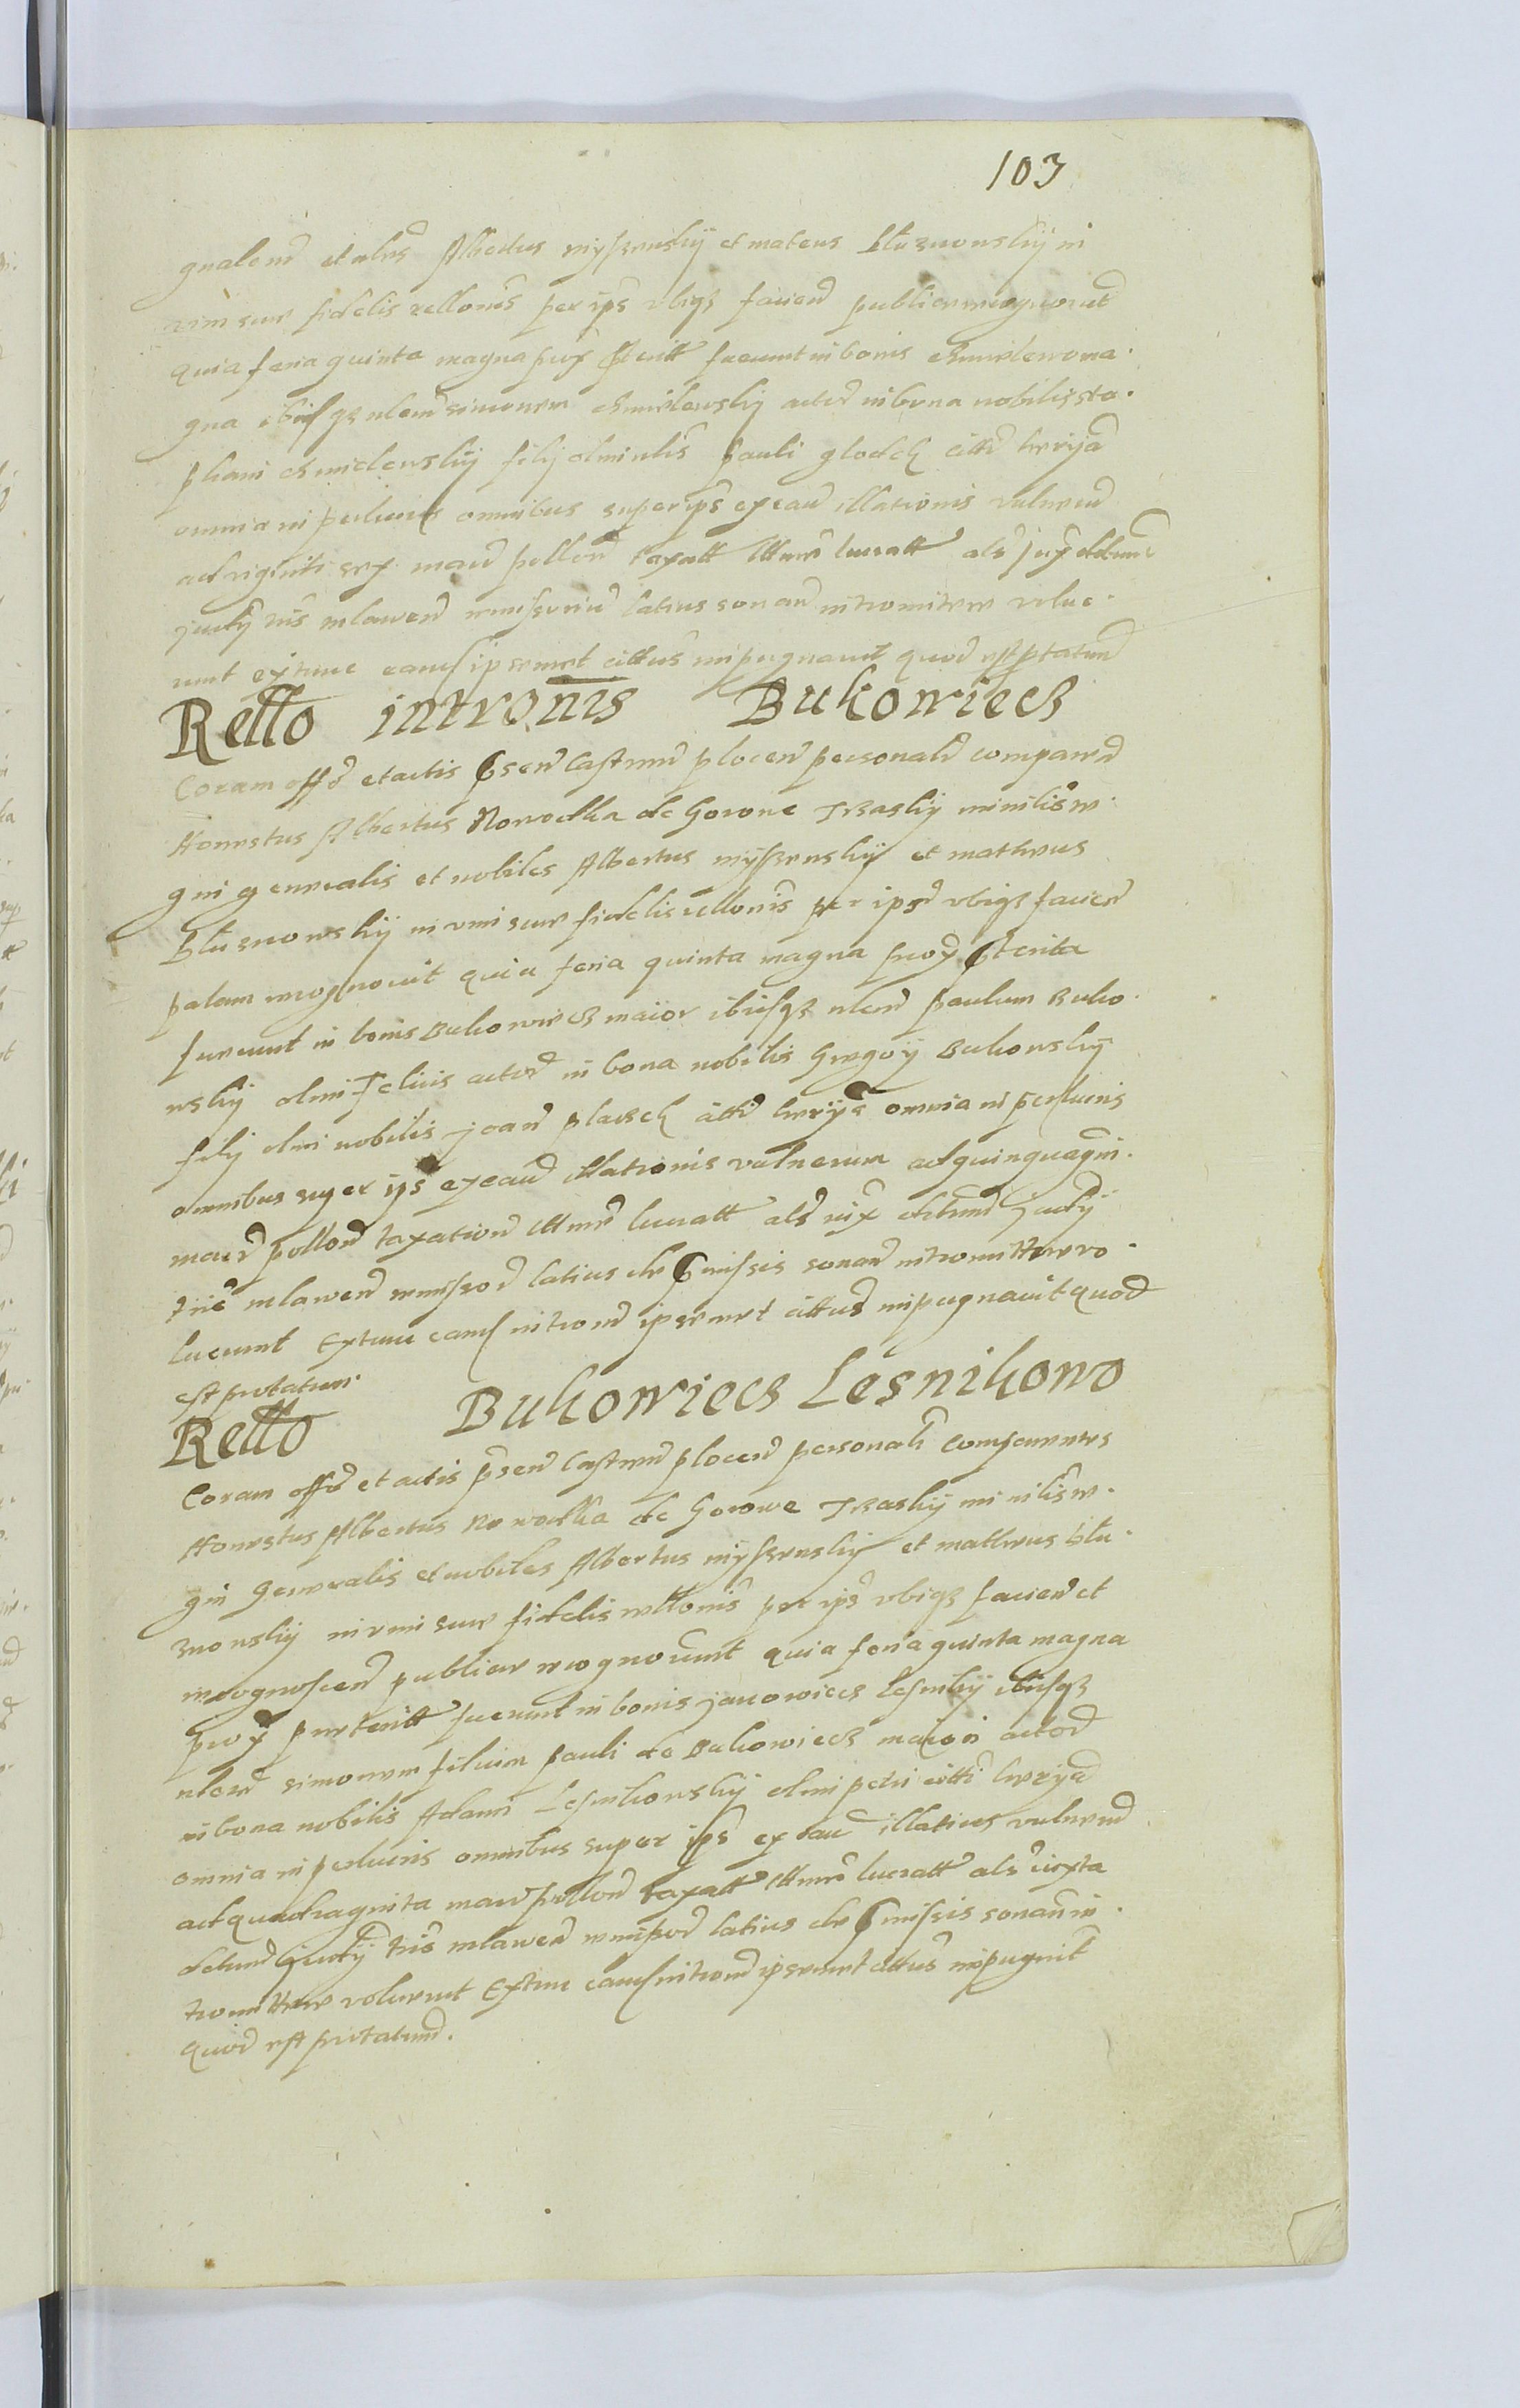 103
et Albertus mÿssewskÿ et mateus bluznowskÿ in
vim sue fidelis rellonis per ips vbiqz faciend publice recognouerunt
quia feria quinta magna prox fuerunt in bonis chmielewo ma
gna ibiqz nlem simonem chmielewskÿ actor in bona nobilis ste
phani chmielewskÿ filÿ olmi nlis pauli glodek citti herÿa
omnia in peluiis omnibus super ips ex eau illationis vulnerum
ad viginti sex marc pollon taxatt lttime lucratt als jux
judÿ mlawen remissoriu latius sonan intromittere volue
runt extunc eand ipsemet cittus impugnauit quod est ptatum
Rello intronis Bukowiecz
Coram offo et actis Psen Castren plocen personalr comparen
Honestus Albertus Nowothka de Gorowe Trzaskÿ minilis re
gni generalis et nobiles Albertus mÿssewskÿ et matheus
Bluznowskÿ in vim sue fidelis rellonis per ips vbiqz facien
palam recognouit quia feria quinta magna prox Pterita
fuerunt in bonis Bukowiecz maior ibiqz nlem paulum Buko
wskÿ olmi felicis actor in bona nobilis Gregorÿ Bukowskÿ
filÿ olmi nobilis joan placzek citti herÿs omnia in peluiis
omnibus super ips ex eau illationis vulnerum ad quinquagin
marc pollon taxation lttime lucratt als judÿ
mlawen remissor latius de Pmissis sonan intromittere vo
luerunt Extunc eand introm ipsemet cittus impugnauit quod
est protatum
Rello Bukowiecz Lesnikowo
Coram offo et actis psen Castren plocen personalr comparentes
Honestus Albertus Nowothka de Gorowe Trzaskÿ minilis re
gni Generalis et nobiles Albertus mÿssewskÿ et matheus blu
znowskÿ in vim sue fidelis rellonis per ips vbiqz facien et
recognoscen publice recognouerunt quia feria quinta magna
prox preteritt fuerunt in bonis janowiecz Lesnikÿ ibiqz
nlem simonem filium pauli de Bukowiecz maiori actor
in bona nobilis Adami Lesnikowskÿ olmi petri citti herÿa
omnia in peluiis omnibus super ips ex eau illatiois vulnerum
ad quadraginta marc pollon taxatt lttime lucratt als iuxta
judÿ mlawen remissor latius de Pmissis sonan in
tromittere voluerunt Extunc eand introm ipsemet cittus impugnit
quod est protatum.